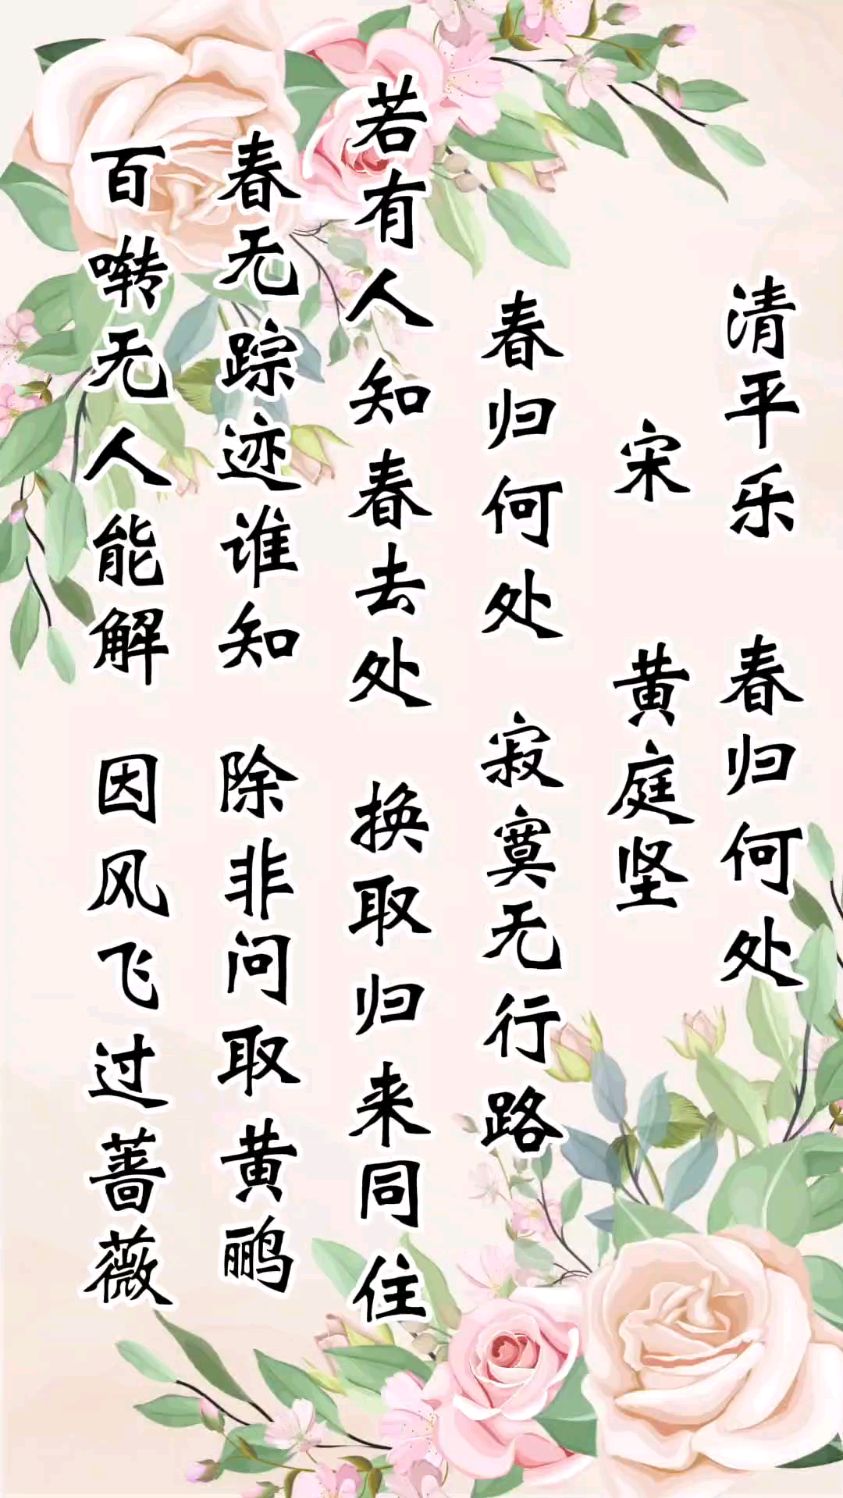 清平乐 春归何处
宋 黄庭坚
春归何处 寂寞无行路
若有人知春去处 换取归来同住
春无踪迹谁知 除非问取黄鹂
百啭无人能解 因风飞过蔷薇